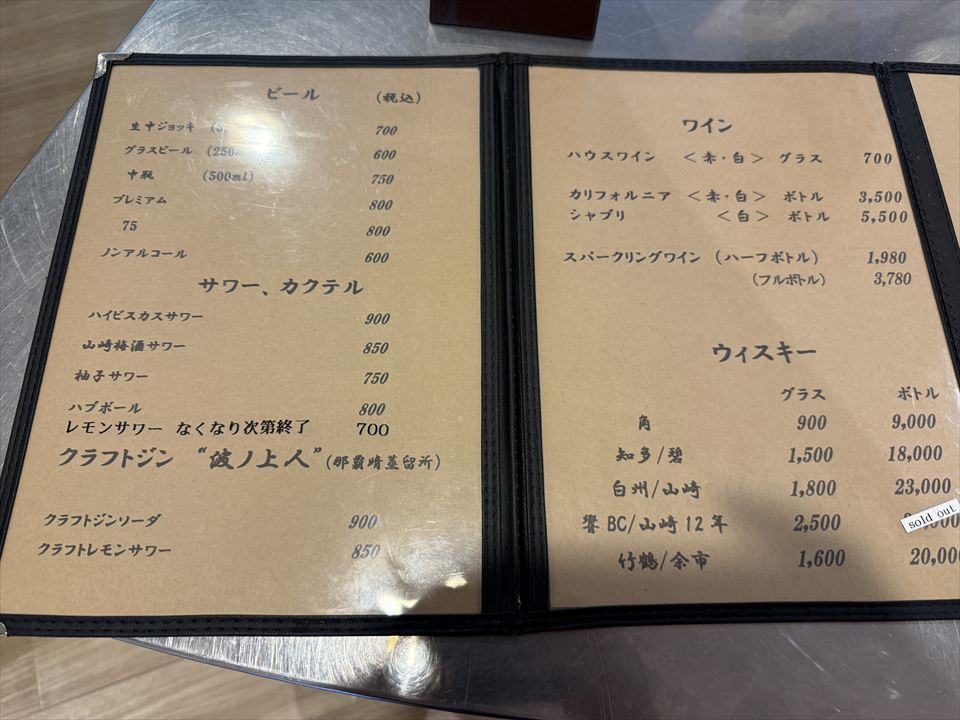 ビール (税込)
生中ジョッキ 700
グラスビール (250ml) 600
中瓶 (500ml) 750
プレミアム 800
75 800
ノンアルコール 600
サワー、カクテル
ハイビスカスサワー 900
山崎梅酒サワー 850
柚子サワー 750
ハブボール 800
レモンサワー なくなり次第終了 700
クラフトジン “波ノ上人” (那覇晴蒸留所)
クラフトジンソーダ 900
クラフトレモンサワー 850
ワイン
ハウスワイン <赤・白> グラス 700
カリフォルニア <赤・白> ボトル 3,500
シャブリ <白> ボトル 5,500
スパークリングワイン (ハーフボトル) 1,980
(フルボトル) 3,780
ウィスキー
グラス ボトル
角 900 9,000
知多/碧 1,500 18,000
白州/山崎 1,800 23,000
響BC/山崎12年 2,500 sold out
竹鶴/余市 1,600 20,000